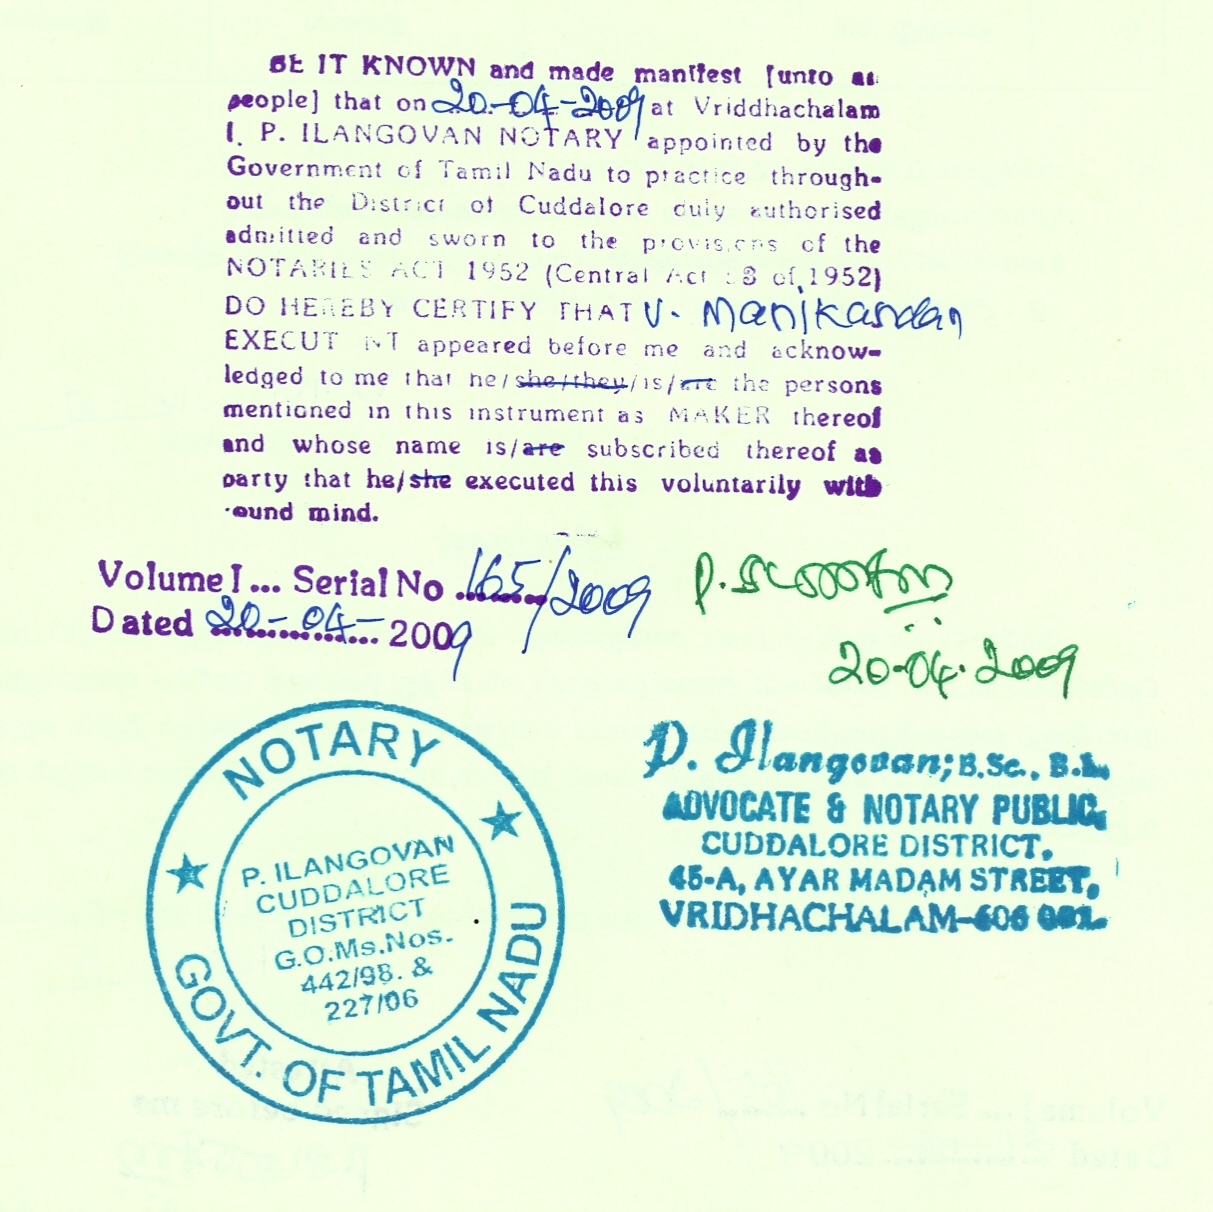 BE IT KNOWN and made manifest [unto as
people] that on 20-04-2009 at Vriddhachalam
I. P. ILANGOVAN NOTARY appointed by the
Government of Tamil Nadu to practice through-
out the District of Cuddalore duly authorised
admitted and sworn to the provisions of the
NOTARIES ACT 1952 (Central Act 8 of 1952)
DO HEREBY CERTIFY THAT V. Manikandan
EXECUT NT appeared before me and acknow-
ledged to me that he/she/they/is/are the persons
mentioned in this instrument as MAKER thereof
and whose name is/are subscribed thereof as
party that he/she executed this voluntarily with
ound mind.
Volume I ... Serial No 165/2009
Dated 20-04-2009
20-04-2009
P. Ilangovan, B.Sc., B.L.
ADVOCATE & NOTARY PUBLIC,
CUDDALORE DISTRICT,
45-A, AYAR MADAM STREET,
VRIDHACHALAM-606 001.
NOTARY
P. ILANGOVAN
CUDDALORE
DISTRICT
G.O.Ms.Nos.
442/98. &
227/06
GOVT. OF TAMIL NADU